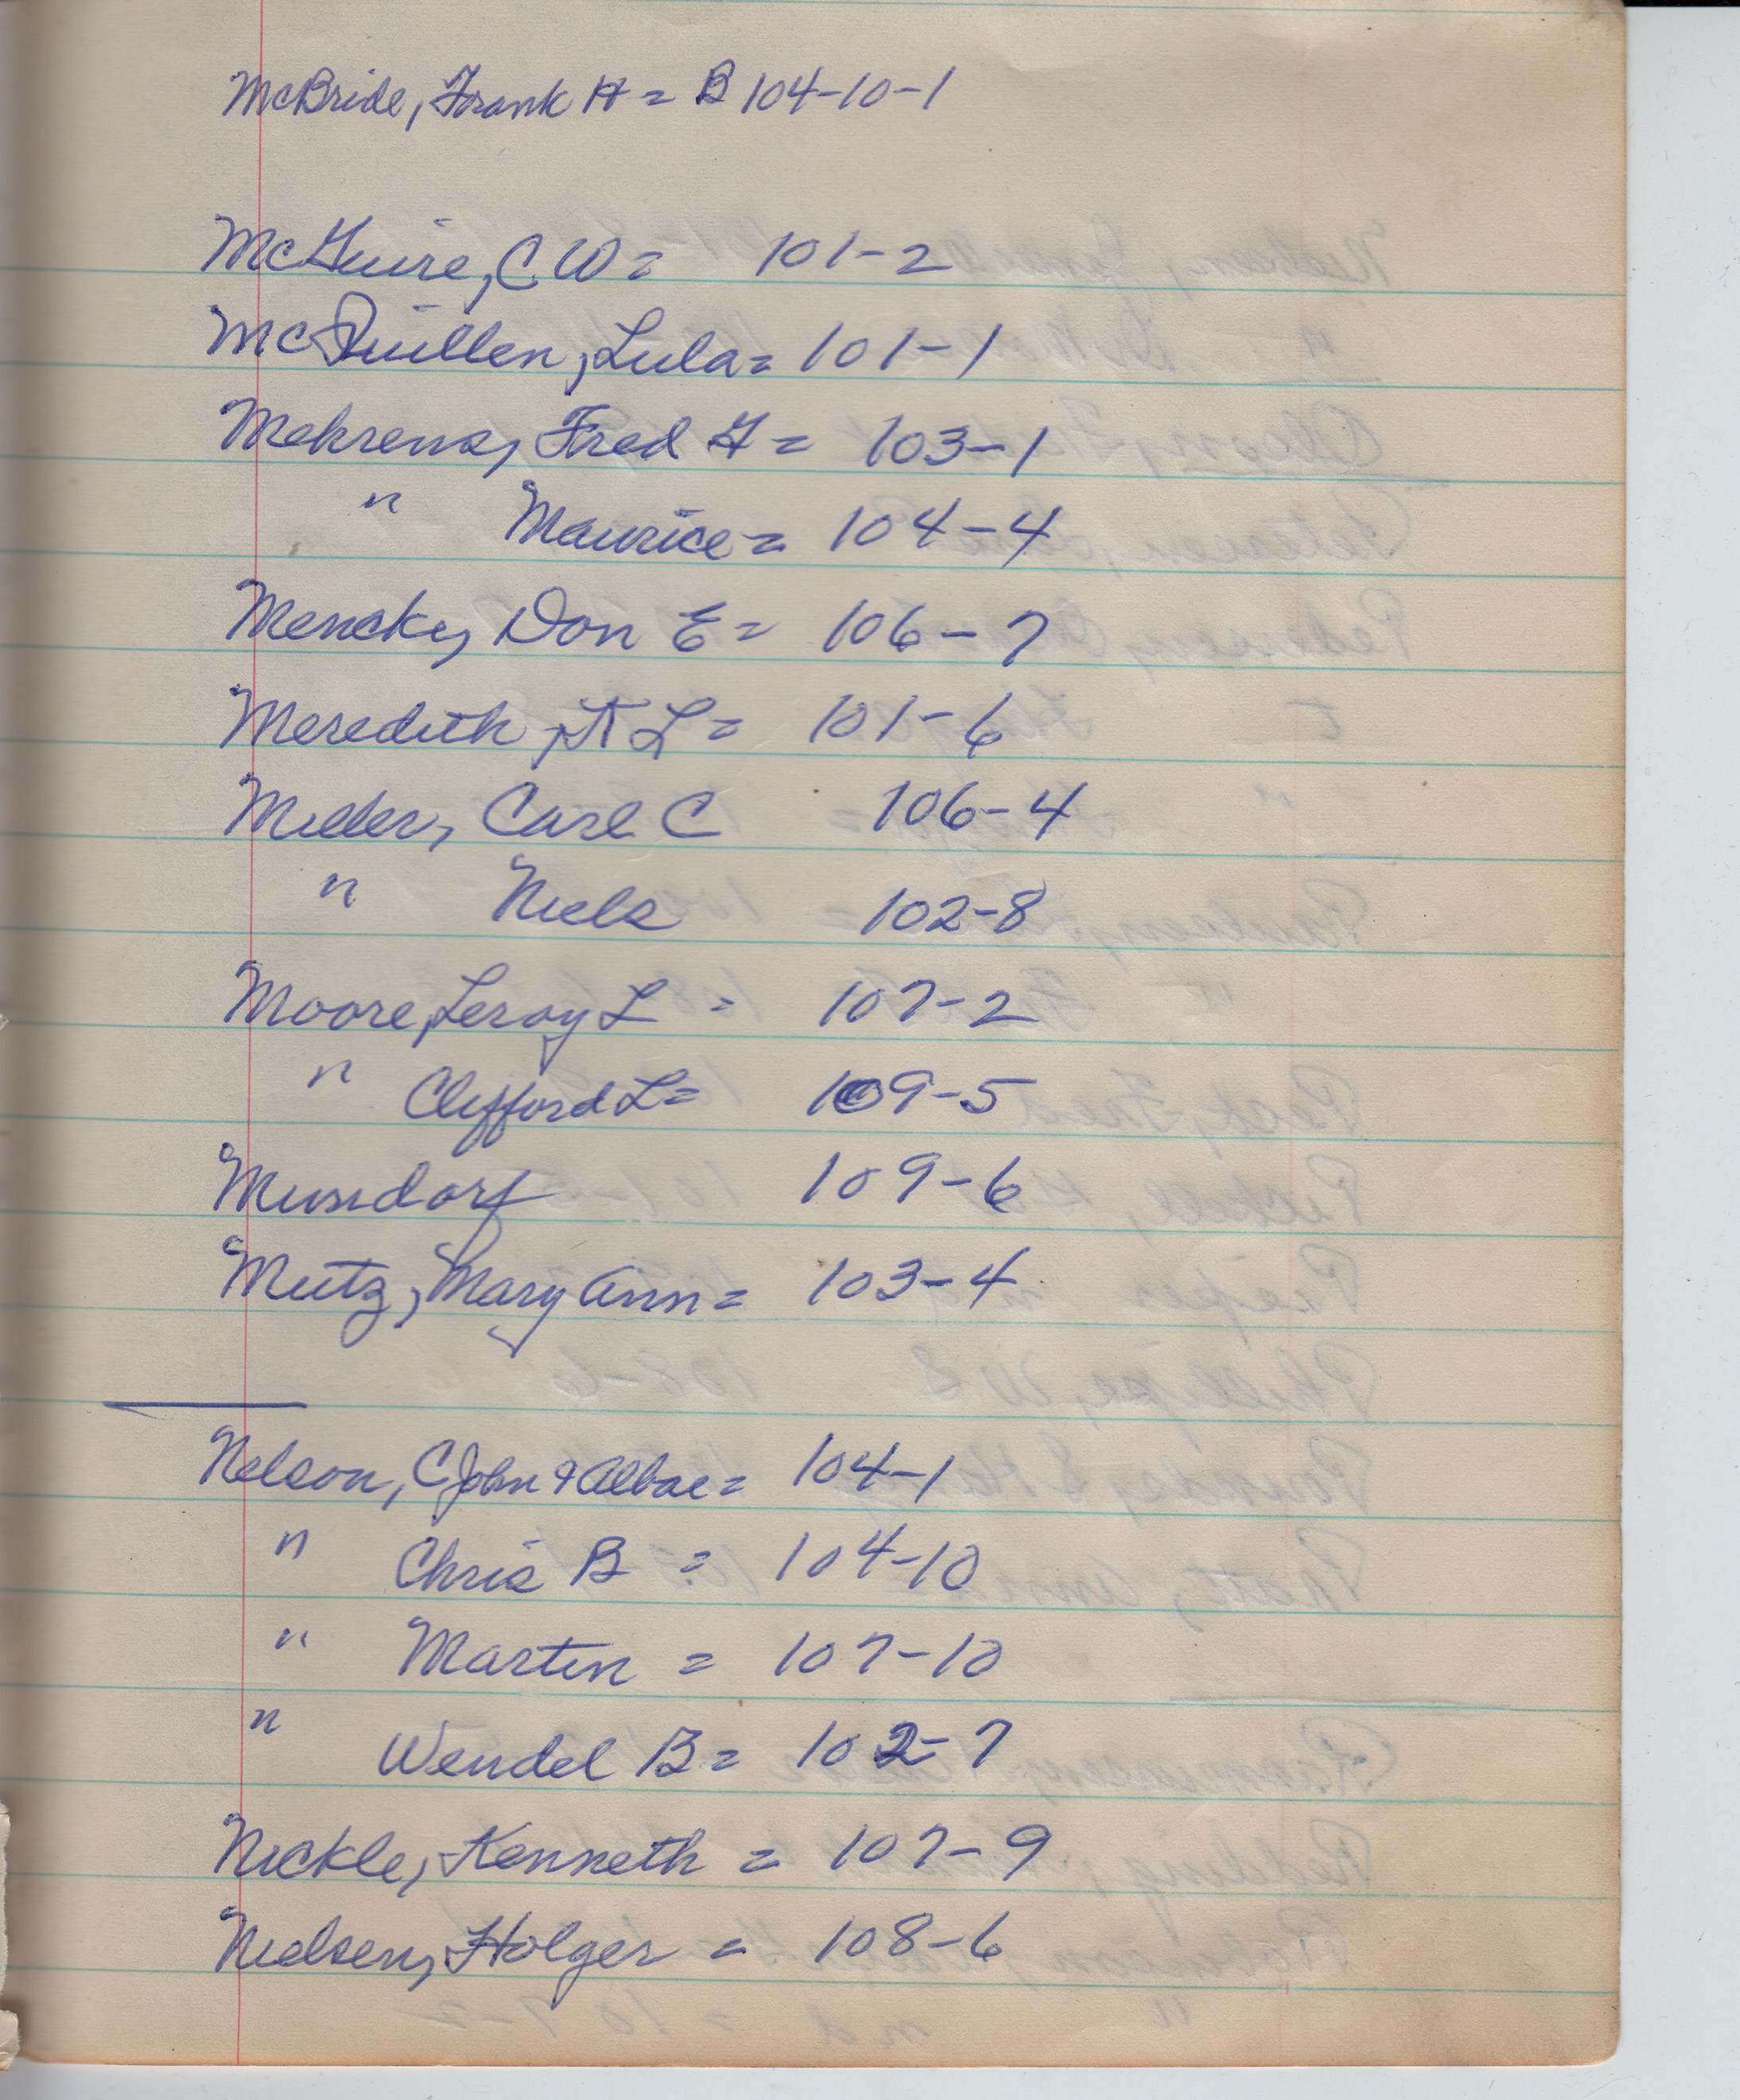 McBride, Frank H = B 104-10-1
McGuire, C W = 101-2
McQuillen, Lula = 101-1
Mehrens, Fred G = 103-1
" Maurice = 104-4
Mencke, Don E = 106-7
Meredith, A L = 101-6
Miller, Carl C 106-4
" Niels 102-8
Moore, Leroy L = 107-2
" Clifford L = 109-5
Mundorf 109-6
Mutz, Mary Ann = 103-4
Nelson, C John & Albae = 104-1
" Chris B = 104-10
" Martin = 107-10
" Wendel B = 102-7
Nickle, Kenneth = 107-9
Nielsen, Holger = 108-6